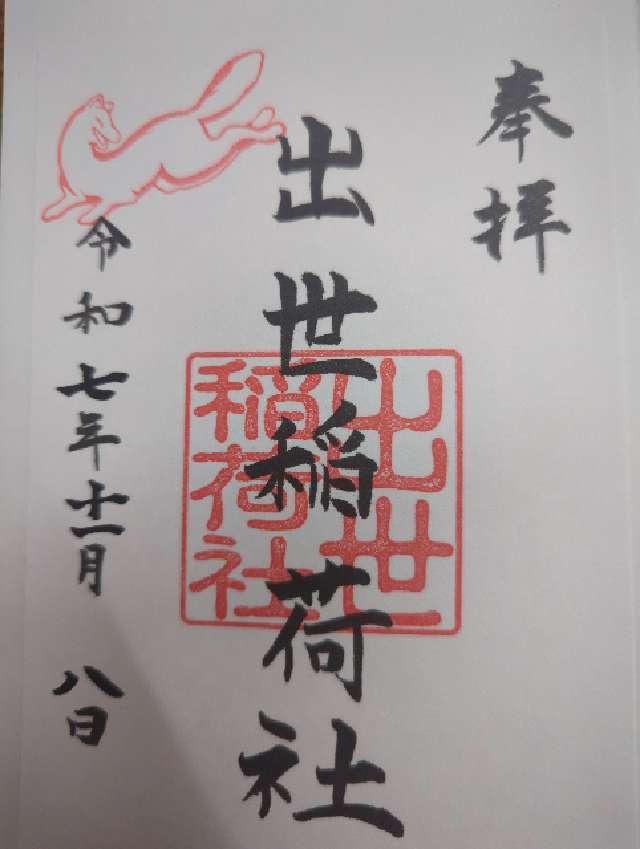 奉拝
出世稲荷社
出世
稲荷社
令和七年十一月八日